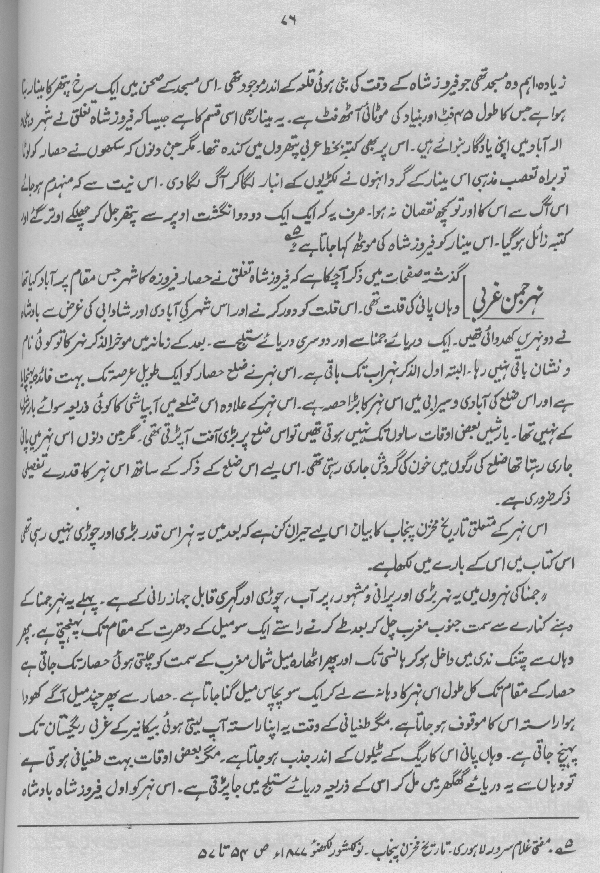 ۷۶
زیادہ اہم وہ مسجد تھی جو فیروز شاہ کے وقت کی بنی ہوئی قلعہ کے اندر موجود تھی۔ اس مسجد کے صحن میں ایک سرخ پتھر کا مینار بنا
ہوا ہے جس کا طول ۴۵ فٹ اور بنیاد کی موٹائی آٹھ فٹ ہے۔ یہ مینار بھی اسی قسم کا ہے جیسا کہ فیروز شاہ تغلق نے شہر دہلی و
الہ آباد میں اپنی یادگار بنوائے ہیں۔ اس پر بھی کتبہ بخط عربی پتھروں میں کندہ تھا۔ مگر جن دنوں کہ سکھوں نے حصار کو لوٹا
تو براہ تعصب مذہبی اس مینار کے گرد انہوں نے لکڑیوں کے انبار لگا کر آگ لگا دی۔ اس نیت سے کہ منہدم ہو جائے
اس آگ سے اس کا اور تو کچھ نقصان نہ ہوا۔ صرف یہ کہ ایک ایک دو دو انگشت اوپر سے پتھر جل کر چھلکے اوتر گئے اور
کتبہ زائل ہو گیا۔ اس مینار کو فیروز شاہ کی موٹھ کہا جاتا ہے
نہر جمن غربی گذشتہ صفحات میں ذکر آ چکا ہے کہ فیروز شاہ تغلق نے حصار فیروزہ کا شہر جس مقام پر آباد کیا تھا
وہاں پانی کی قلت تھی۔ اس قلت کو دور کرنے اور اس شہر کی آبادی اور شادابی کی غرض سے بادشاہ
نے دو نہریں کھدوائی تھیں۔ ایک دریائے جمنا سے اور دوسری دریائے ستلج سے۔ بعد کے زمانہ میں موخر الذکر نہر کا تو کوئی نام
و نشان باقی نہیں رہا۔ البتہ اول الذکر نہر اب تک باقی ہے۔ اس نہر نے ضلع حصار کو ایک طویل عرصہ تک بہت فائدہ پہنچایا
ہے اور اس ضلع کی آبادی و سیرابی میں اس نہر کا بڑا حصہ ہے۔ اس نہر کے علاوہ اس ضلع میں آبپاشی کا کوئی ذریعہ سوائے بارشوں
کے نہیں تھا۔ بارشیں بعض اوقات سالوں تک نہیں ہوتی تھیں تو اس ضلع پر بڑی آفت آ پڑتی تھی۔ مگر جن دنوں اس نہر میں پانی
جاری رہتا تھا ضلع کی رگوں میں خون کی گردش جاری رہتی تھی۔ اس لیے اس ضلع کے ذکر کے ساتھ اس نہر کا قدرے تفصیلی
ذکر ضروری ہے۔
اس نہر کے متعلق تاریخ مخزن پنجاب کا بیان اس لیے حیران کن ہے کہ بعد میں یہ نہر اس قدر بڑی اور چوڑی نہیں رہی تھی
اس کتاب میں اس کے بارے میں لکھا ہے۔
"جمنا کی نہروں میں یہ نہر بڑی اور پرانی و مشہور، پر آب، چوڑی اور گہری قابل جہاز رانی کے ہے۔ پہلے یہ نہر جمنا کے
دہنے کنارے سے سمت جنوب مغرب چل کر بعد طے کرنے راستے ایک سو میل کے دھرت کے مقام تک پہنچتی ہے۔ پھر
وہاں سے چتنگ ندی میں داخل ہو کر ہانسی تک اور پھر اٹھارہ میل شمال مغرب کے سمت کو چلتی ہوئی حصار تک جاتی ہے
حصار کے مقام تک کل طول اس نہر کا دہانہ سے لے کر ایک سو پچاس میل گنا جاتا ہے۔ حصار سے پھر چند میل آگے کھودا
ہوا راستہ اس کا موقوف ہو جاتا ہے۔ مگر طغیانی کے وقت یہ اپنا راستہ آپ لیتی ہوئی بیکانیر کے غربی ریگستان تک
پہنچ جاتی ہے۔ وہاں پانی اس کا ریگ کے ٹیلوں کے اندر جذب ہو جاتا ہے۔ مگر بعض اوقات بہت طغیانی ہوتی ہے
تو وہاں سے یہ دریائے گھگھر میں مل کر اس کے ذریعہ دریائے ستلج میں جا پڑتی ہے۔ اس نہر کو اول فیروز شاہ بادشاہ
مفتی غلام سرور لاہوری۔ تاریخ مخزن پنجاب۔ نولکشور لکھنؤ ۱۸۷۷ء ص ۵۴ تا ۵۷